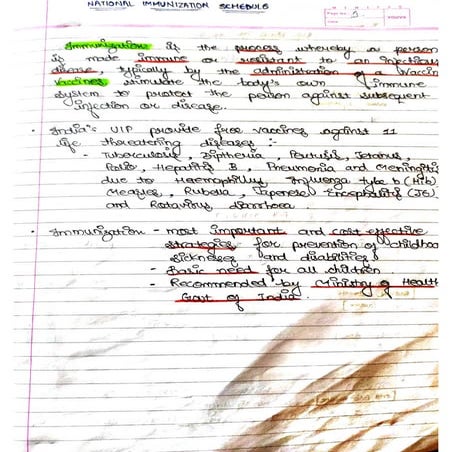 NATIONAL IMMUNIZATION SCHEDULE
Page No. 3
Immunization is the process whereby a person
is made immune or resistant to an infectious
disease, typically by the administration of a vaccin
Vaccines stimulate the body's own immune
system to protect the person against subsequent
infection or disease.
India's UIP provide free vaccines against 11
life threatening diseases :-
- Tuberculosis, Diptheria, Pertusis, Tetanus,
Polio, Hepatitis B, Pneumonia and Meningitis
due to Haemophillus Influenza type b (Hib)
Measles, Rubella, Japenese Encephality (JE)
and Rotavirus diarrhoea
Immunization - most important and cost effective
strategies for prevention of childhoo
sicknesses and disabilities
- Basic need for all children.
- Recommended by Ministry of Health
Govt of India.